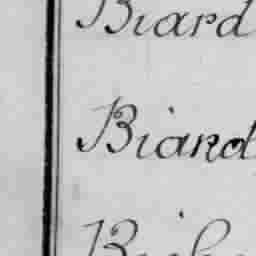 Biard
Biard